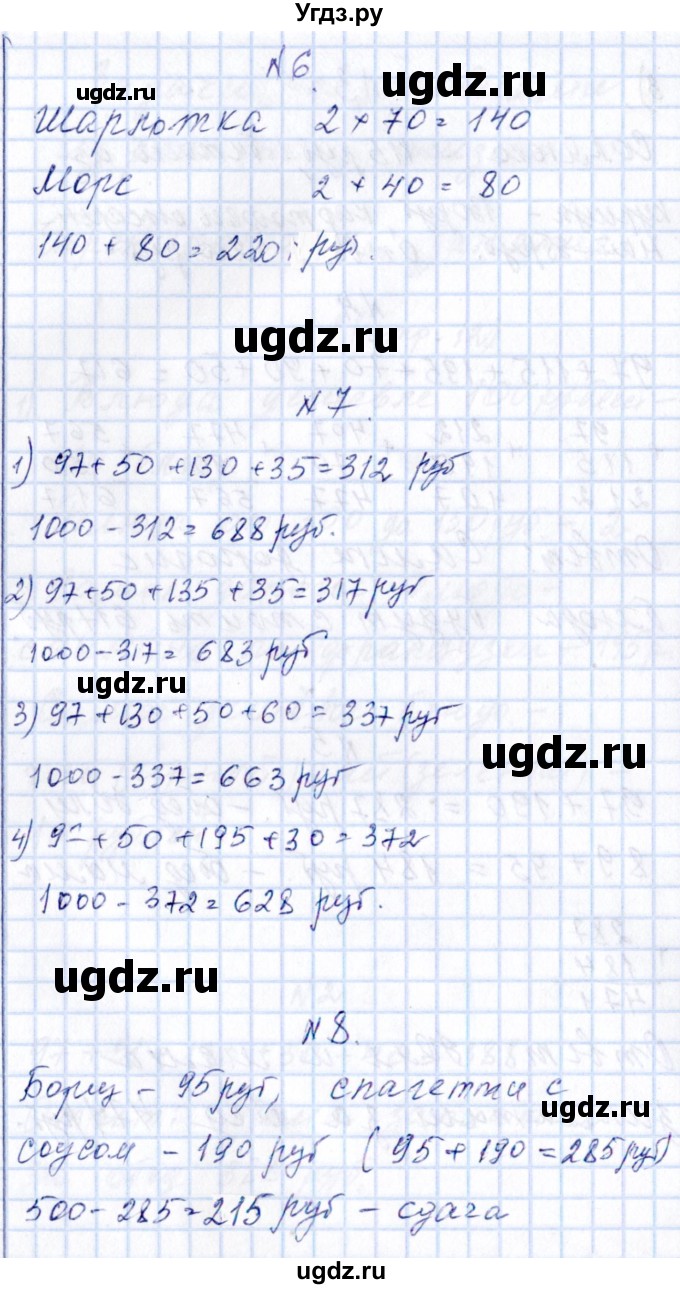 Угдз.ру
№6.
Шарлотка 2 × 70 = 140
Морс 2 × 40 = 80
140 + 80 = 220 руб.
№7.
1) 97 + 50 + 130 + 35 = 312 руб
1000 - 312 = 688 руб.
2) 97 + 50 + 135 + 35 = 317 руб
1000 - 317 = 683 руб
3) 97 + 130 + 50 + 60 = 337 руб
1000 - 337 = 663 руб
4) 97 + 50 + 195 + 30 = 372
1000 - 372 = 628 руб.
№8.
Борщ - 95 руб, спагетти с
соусом - 190 руб (95 + 190 = 285 руб)
500 - 285 = 215 руб - сдача
ugdz.ru
ugdz.ru
ugdz.ru
ugdz.ru
ugdz.ru
ugdz.ru
ugdz.ru
ugdz.ru